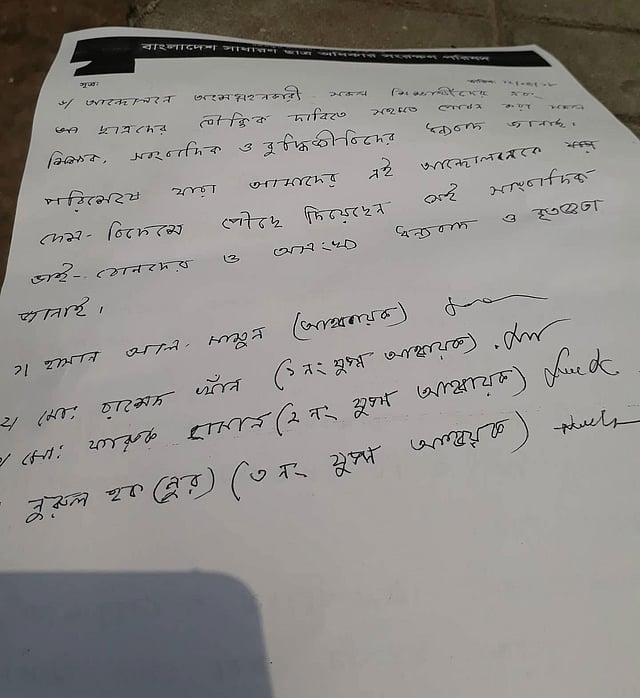 বাংলাদেশ সাধারণ ছাত্র অধিকার সংরক্ষণ পরিষদ
সূত্র:
তারিখ:
৬/ আন্দোলনে অংশগ্রহনকারী সকল শিক্ষার্থীদের এবং
ছাত্রদের যৌক্তিক দাবিতে সহমত পোষন করা সকল
শিক্ষক, সাংবাদিক ও বুদ্ধিজীবিদের ধন্যবাদ জানাই।
পরিশেষে যারা আমাদের এই আন্দোলনকে
দেশ-বিদেশে পৌছে দিয়েছেন সেই সাংবাদিক
ভাই-বোনদের ও অসংখ্য ধন্যবাদ ও কৃতজ্ঞতা
জানাই।
১। হাসান আল মামুন (আহ্বায়ক)
২/ মো: রাশেদ খাঁন (১ নং যুগ্ম আহ্বায়ক)
মো: ফারুক হাসান (২ নং যুগ্ম আহ্বায়ক)
নুরুল হক (নুর) (৩ নং যুগ্ম আহ্বায়ক)